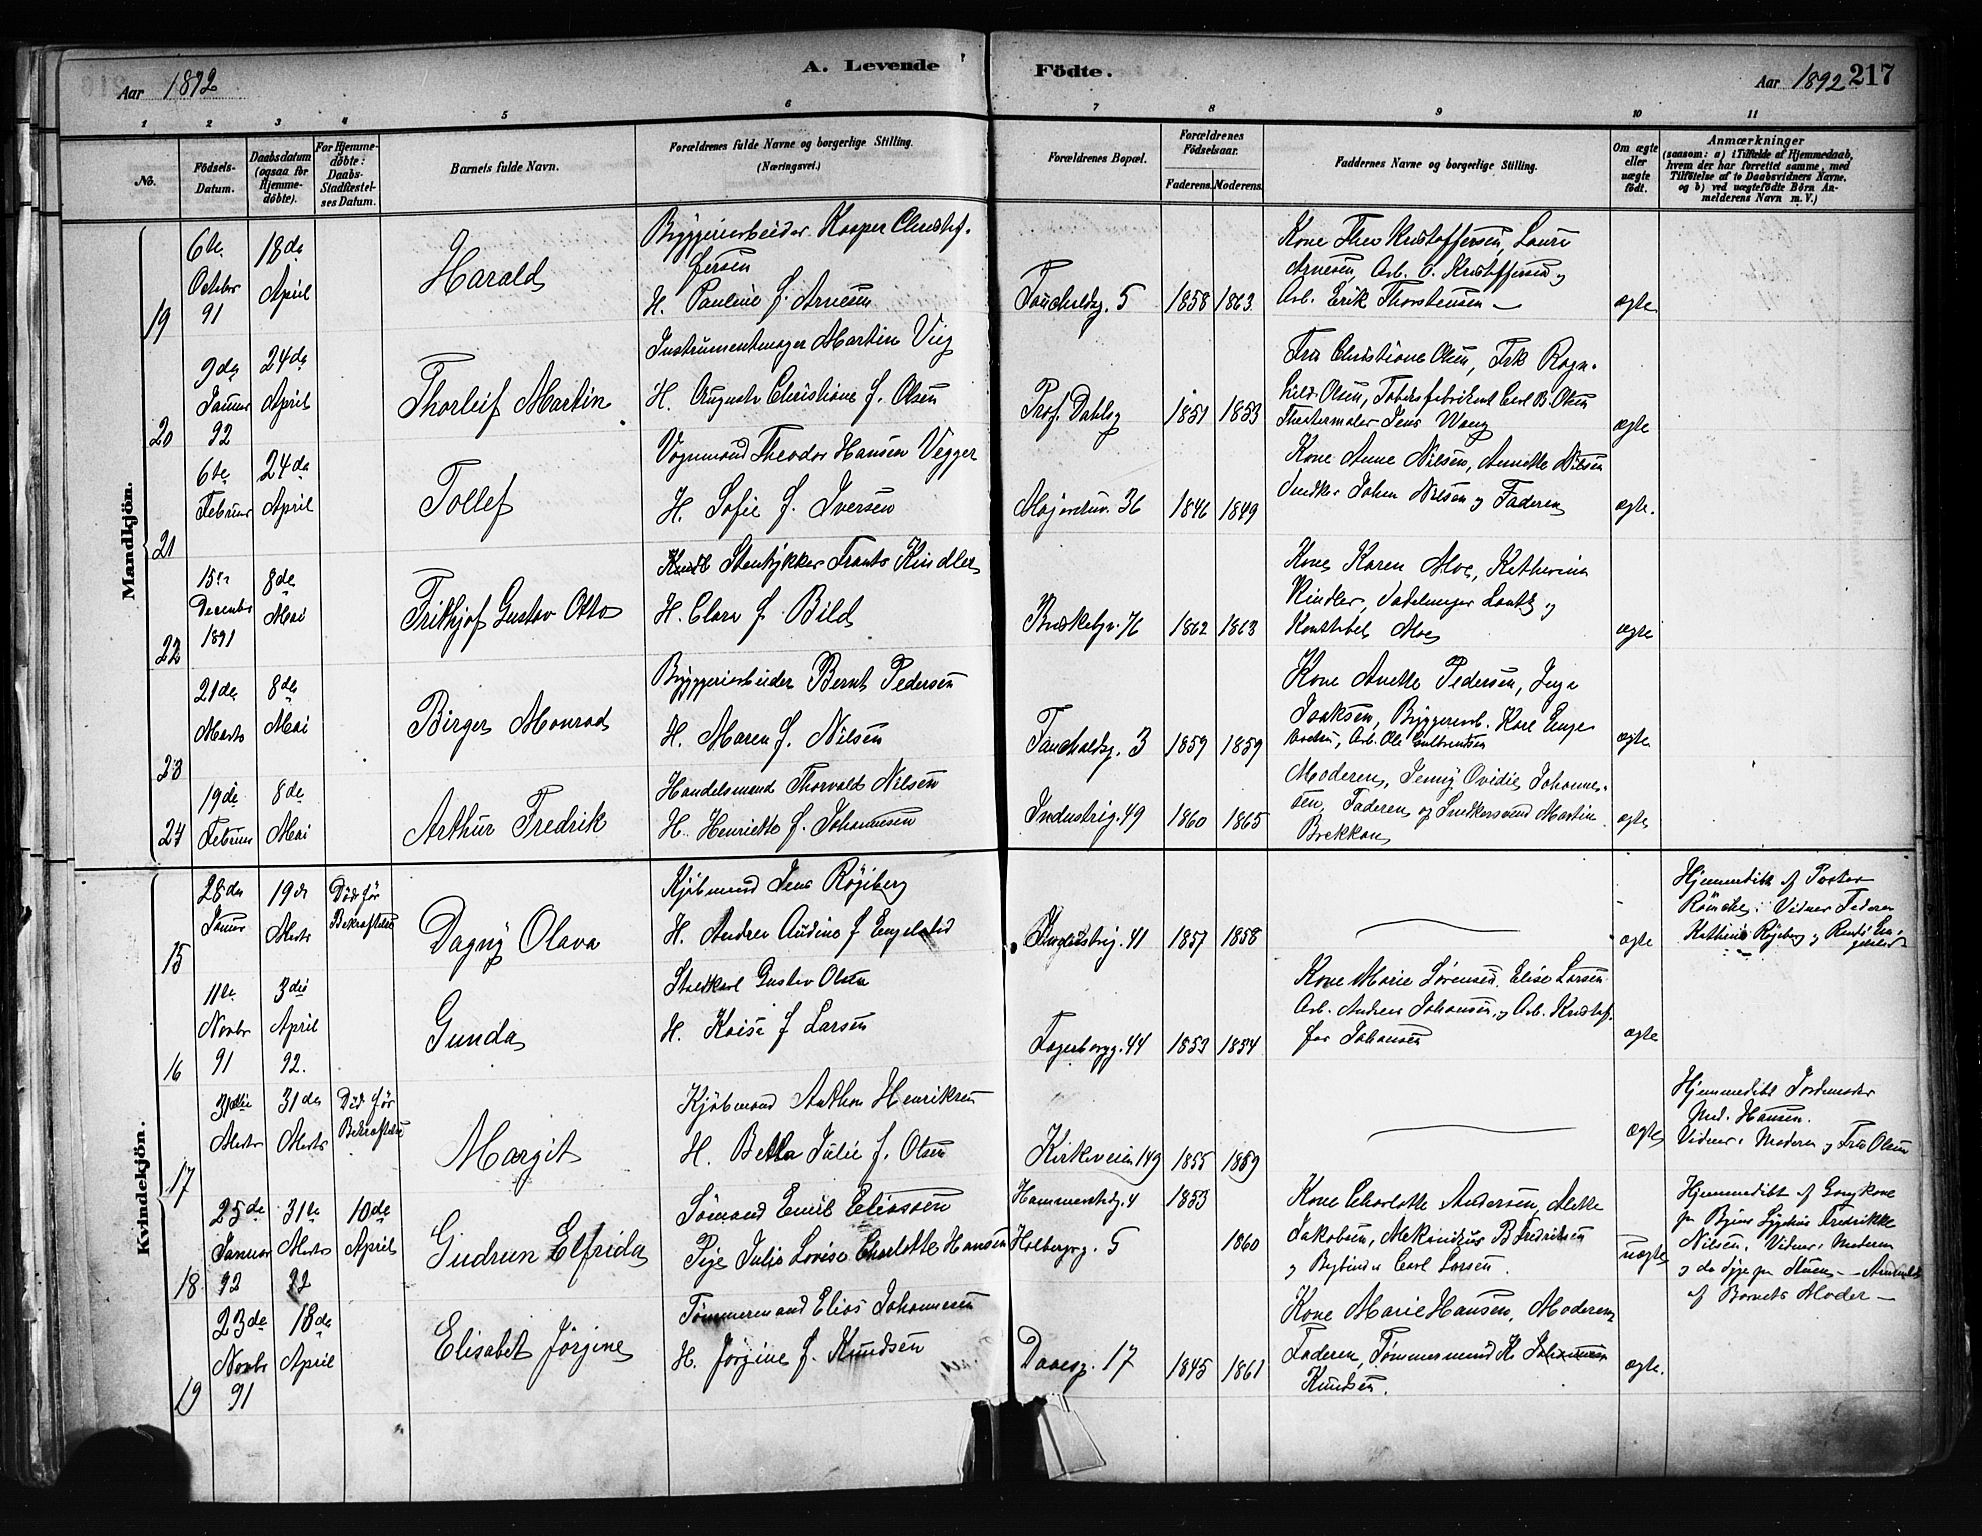 A. Levende Födte.
Aar 1892
Aar 1892 217
1 2 3 4 5 6 7 8 9 10 11
No.
Födsels-Datum.
Daabsdatum (ogsaa for Hjemme-döbte).
For Hjemme-döbte: Daabs-Stadfæstel-ses Datum.
Barnets fulde Navn.
Forældrenes fulde Navne og borgerlige Stilling.
(Næringsvei.)
Forældrenes Bopæl.
Forældrenes Födselsaar.
Faderens. Moderens.
Faddernes Navne og borgerlige Stilling.
Om ægte eller uægte födt.
Anmærkninger
(saasom: a) i Tilfælde af Hjemmedaab, hvem der har forrettet samme, med Tilföielse af to Daabsvidners Navne, og b) ved uægtefödte Börn Anmelderens Navn m. V.)
Mandkjön.
19 6te October 91 18de April
Harald
Byggeriarbeider Kasper Christoffersen
H. Pauline f. Arnesen
5 1858 1863
Kone Thea Kristoffersen, Laura
Arnesen, Arb. C. Kristoffersen og
Arb. Erik Thorstensen
ægte
20 9de Januar 92 24de April
Thorleif Martin
Instrumentmager Martin Viig
H. Augusta Christiane f. Olsen
Prof. Dahlsg 1851 1853
Fru Christiane Olsen, Frk Ragnhild Olsen, Tobaksfabrikant Carl B. Olsen
Theatermaler Jens Wang
ægte
21 6te Februar 24de April
Tollef
Vognmand Theodor Hansen Vegger
H. Sofie f. Iversen
Majorstuv. 36 1846 1849
Kone Anne Nilsen, Annette Nilsen
Snedker Johan Nilsen og Faderen
ægte.
22 15de December 1891 8de Mai
Frithjof Gustav Otto
Stentrykker Frants Kindler
H. Clara f. Bild
Briskebyv. 76 1862 1863
Kone Karen Moe, Katherina
Kindler, Sadelmager og
Konstabel Moe
ægte
23 21de Marts 8de Mai
Birger Monrad
Byggeriarbeider Bernt Pedersen
H. Maren f. Nilsen
3 1859 1859
Kone Anette Pedersen, Inga
Isaksen, Byggeriarb. Karl
Arb. Ole Gulbrandsen
ægte
24 19de Februar 8de Mai
Arthur Fredrik
Handelsmand Thorvald Nilsen
H. Henriette f. Johannesen
Industrig. 49 1860 1865
Moderen, Jenny Ovidie Johannesen, Faderen og Snedkersvend Martin
Brekkan
ægte
Kvindekjön.
15 28de Januar 19de Marts Död för Bekræftelsen
Dagny Olava
Kjöbmand Jens Röyeberg
H. Andrea Audine f Engelstad
Industrig. 41 1857 1858
ægte
Hjemmedöbt af Pastor
Vidner Faderen
16 11te Novbr 91 3die April 92.
Gunda
Staldkarl Gustav Olsen
H. Kaisa f Larsen
Fagerborgg. 44 1853 1854
Kone Marie Sörensen, Elise Larsen
Arb. Andreas Johansen, og Arb. Kristoffer Johansen
ægte
17 31die Marts 31de Marts Död för Bekræftelsen
Margit
Kjöbmand Anthon Henriksen
H. Betta Julie f. Olsen
Kirkeveien 149 1855 1859
ægte
Hjemmedöbt Jordemoder
Hansen.
Vidner: Moderen og Fru Olsen
18 25de Januar 92 31te Marts 92 10de April
Gudrun Elfrida
Sömand Emil Eliassen
Pige Julie Lovise Charlotte Hansen
Hammerstadg. 4 1853
Holbergsg. 5 1860
Kone Charlotte Andersen, Mette
Jakobsen, Mekanikus B Fredriksen
og Carl Larsen.
uægte
Hjemmedöbt af Gangkone
Fredrikke
Nilsen. Vidner: Moderen
Anmeldt
af Barnets Moder
19 23de Novbr 91 18de April
Elisabet Jörgine
Tömmermand Elias Johannesen
H. Jörgine f. Knudsen
Daaesg. 17 1845 1861
Kone Marie Hansen, Moderen
Faderen, Tömmermand K. Johannesen
Knudsen.
ægte.